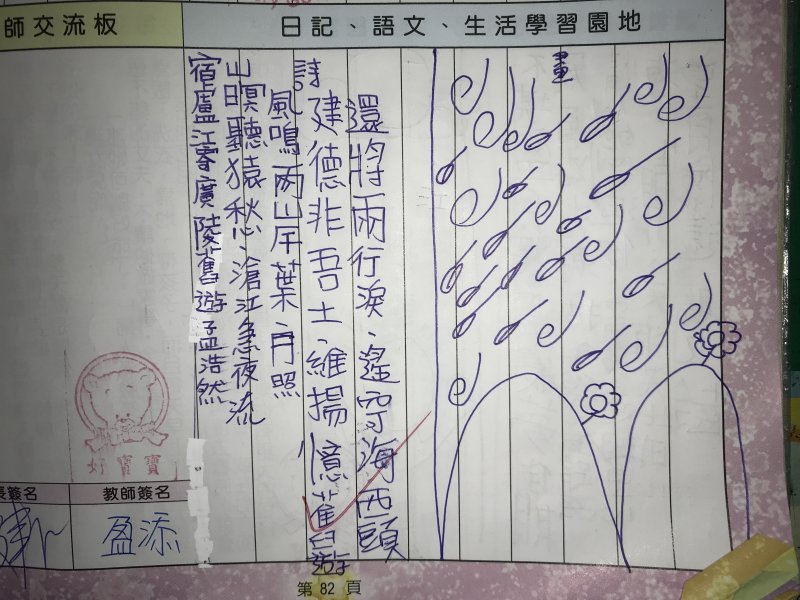 師交流板
日記、語文、生活學習園地
宿盧江寄廣陵舊遊孟浩然
山暝聽猿愁、滄江急夜流
風鳴兩岸葉、月照
詩
建德非吾土、維揚憶舊遊
還將兩行淚、遙寄海西頭
畫
好寶寶
長簽名
教師簽名
盈添
第 82 頁